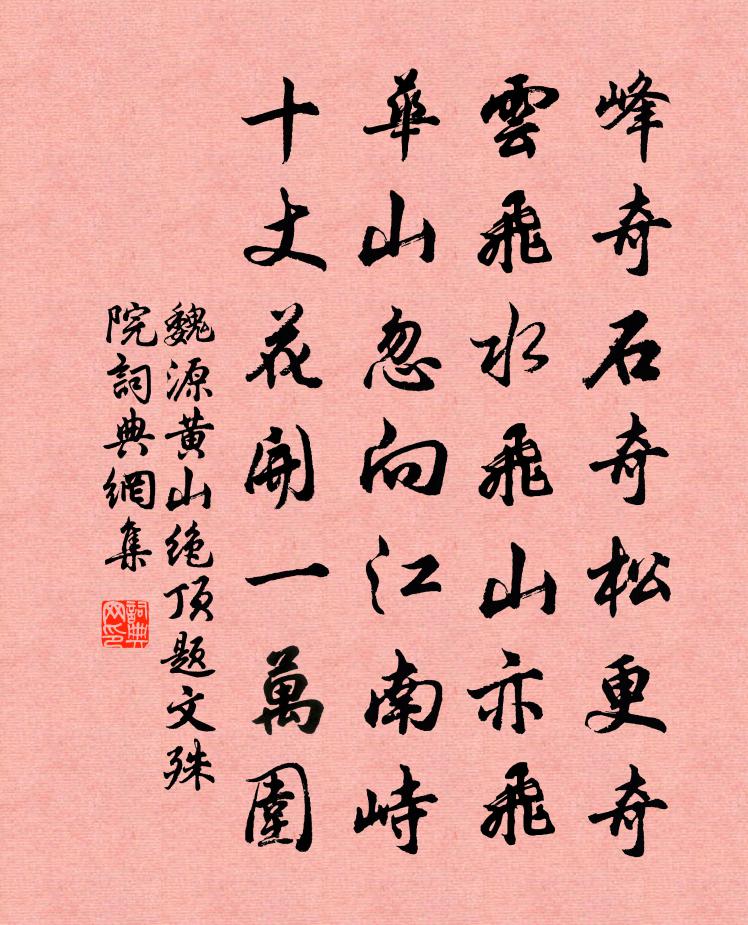 峰奇石奇松更奇
雲飛水飛山亦飛
華山忽向江南峙
十丈花開一萬圍
魏源黄山绝頂题文殊
院詞典網集
詞典网印